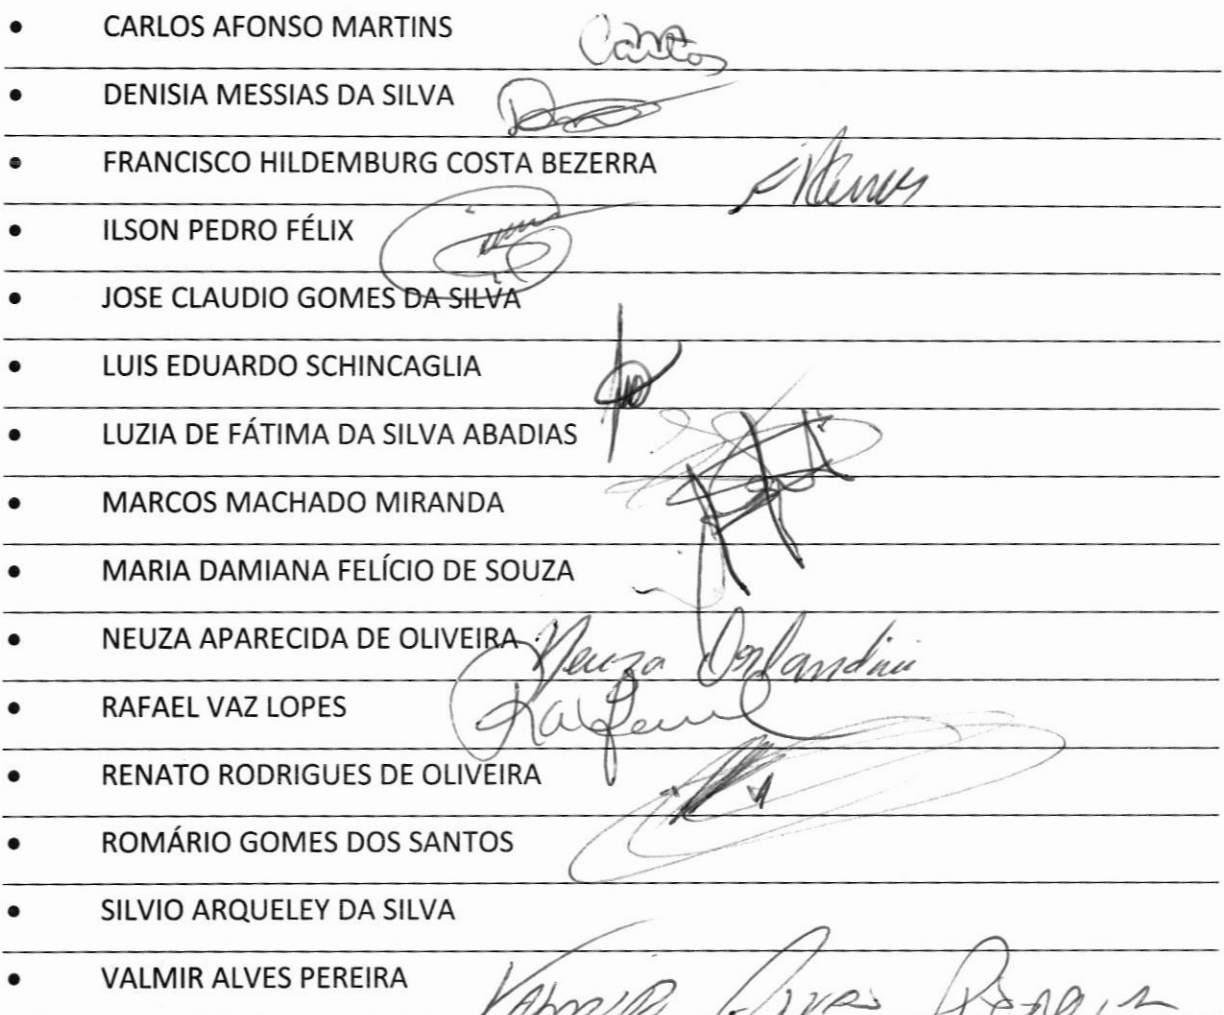 • CARLOS AFONSO MARTINS Carlos
• DENISIA MESSIAS DA SILVA
• FRANCISCO HILDEMBURG COSTA BEZERRA
• ILSON PEDRO FÉLIX
• JOSE CLAUDIO GOMES DA SILVA
• LUIS EDUARDO SCHINCAGLIA
• LUZIA DE FÁTIMA DA SILVA ABADIAS
• MARCOS MACHADO MIRANDA
• MARIA DAMIANA FELÍCIO DE SOUZA
• NEUZA APARECIDA DE OLIVEIRA Neuza Orlandini
• RAFAEL VAZ LOPES Rafael
• RENATO RODRIGUES DE OLIVEIRA
• ROMÁRIO GOMES DOS SANTOS
• SILVIO ARQUELEY DA SILVA
• VALMIR ALVES PEREIRA Valmir Alves Pereira